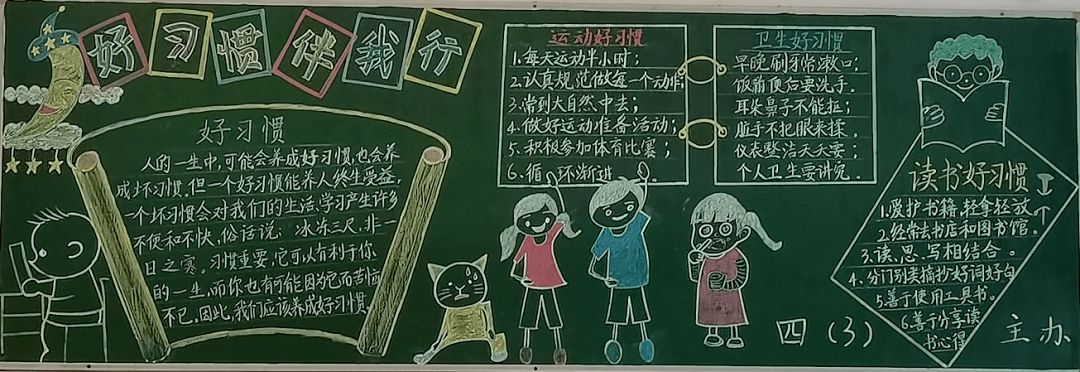 好习惯伴我行
好习惯
人的一生中，可能会养成好习惯，也会养
成坏习惯，但一个好习惯能养人终生受益，
一个坏习惯会对我们的生活、学习产生许多
不便和不快，俗话说：冰冻三尺，非一
日之寒。习惯重要，它可以有利于你
的一生，而你也有可能因为它而苦恼
不已。因此，我们应该养成好习惯。
运动好习惯
1.每天运动半小时；
2.认真规范做每一个动作；
3.常到大自然中去；
4.做好运动准备活动；
5.积极参加体育比赛；
6.循 环渐进
卫生好习惯
早晚刷牙常漱口；
饭前便后要洗手.
耳朵鼻子不能挖；
脏手不把眼来揉.
仪表整洁天天要；
个人卫生要讲究.
读书好习惯
1.爱护书籍，轻拿轻放
2.经常去书店和图书馆。
3.读、思、写相结合。
4.分门别类摘抄好词好句
5善于使用工具书。
6.善于分享读
书心得
四（3）主办